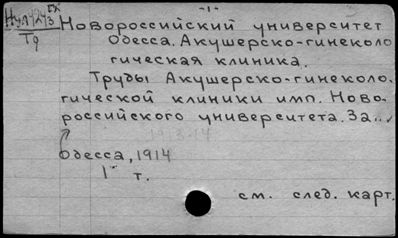 -1-
Новороссийский университет
Одесса. Акушерско-гинеколо
гическая клиника.
Труды Акушерско-гинеколо-
гической клиники имп. Ново-
российского университета. За...
1913-14
Одесса, 1914
1 т.
см. след. карт.